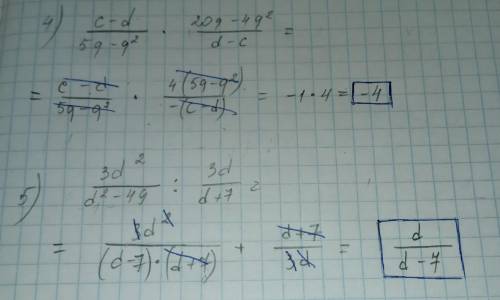 4) (c-d)/(5g-g²) · (20g-4g²)/(d-c) =
= (c-d)/(5g-g²) · 4(5g-g²)/-(c-d) = -1·4 = -4
5) 3d²/(d²-49) : 3d/(d+7) =
= 3d²/((d-7)·(d+7)) + (d+7)/3d = d/(d-7)